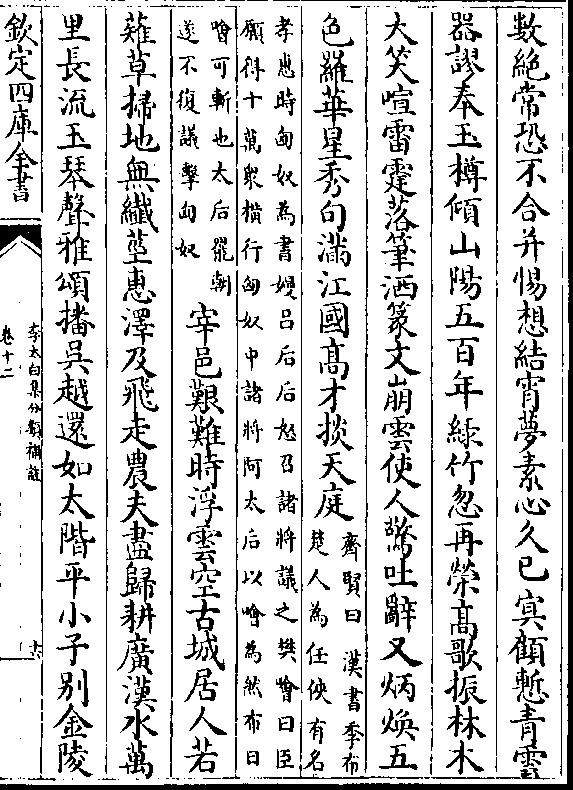 數絶常恐不合并惕想結宵夢素心久已㝠顧慙青雲
器謬奉玉樽傾山陽五百年緑竹忽再榮髙歌振林木
大笑喧雷霆落筆洒篆文崩雲使人驚吐辭又炳煥五
色羅華星秀句滿江國髙才掞天庭
齊賢曰漢書季布
楚人為任俠有名
孝惠時匈奴為書嫚吕后后怒召諸將議之樊噲曰臣
願得十萬衆横行匈奴中諸將阿太后以噲為然布曰
噲可斬也太后罷朝
遂不復議擊匈奴
宰邑艱難時浮雲空古城居人若
薙草掃地無纎莖惠澤及飛走農夫盡歸耕廣漢水萬
里長流玉琴聲雅頌播吳越還如太階平小子别金陵
欽定四庫全書
李太白集分類補註
卷十二